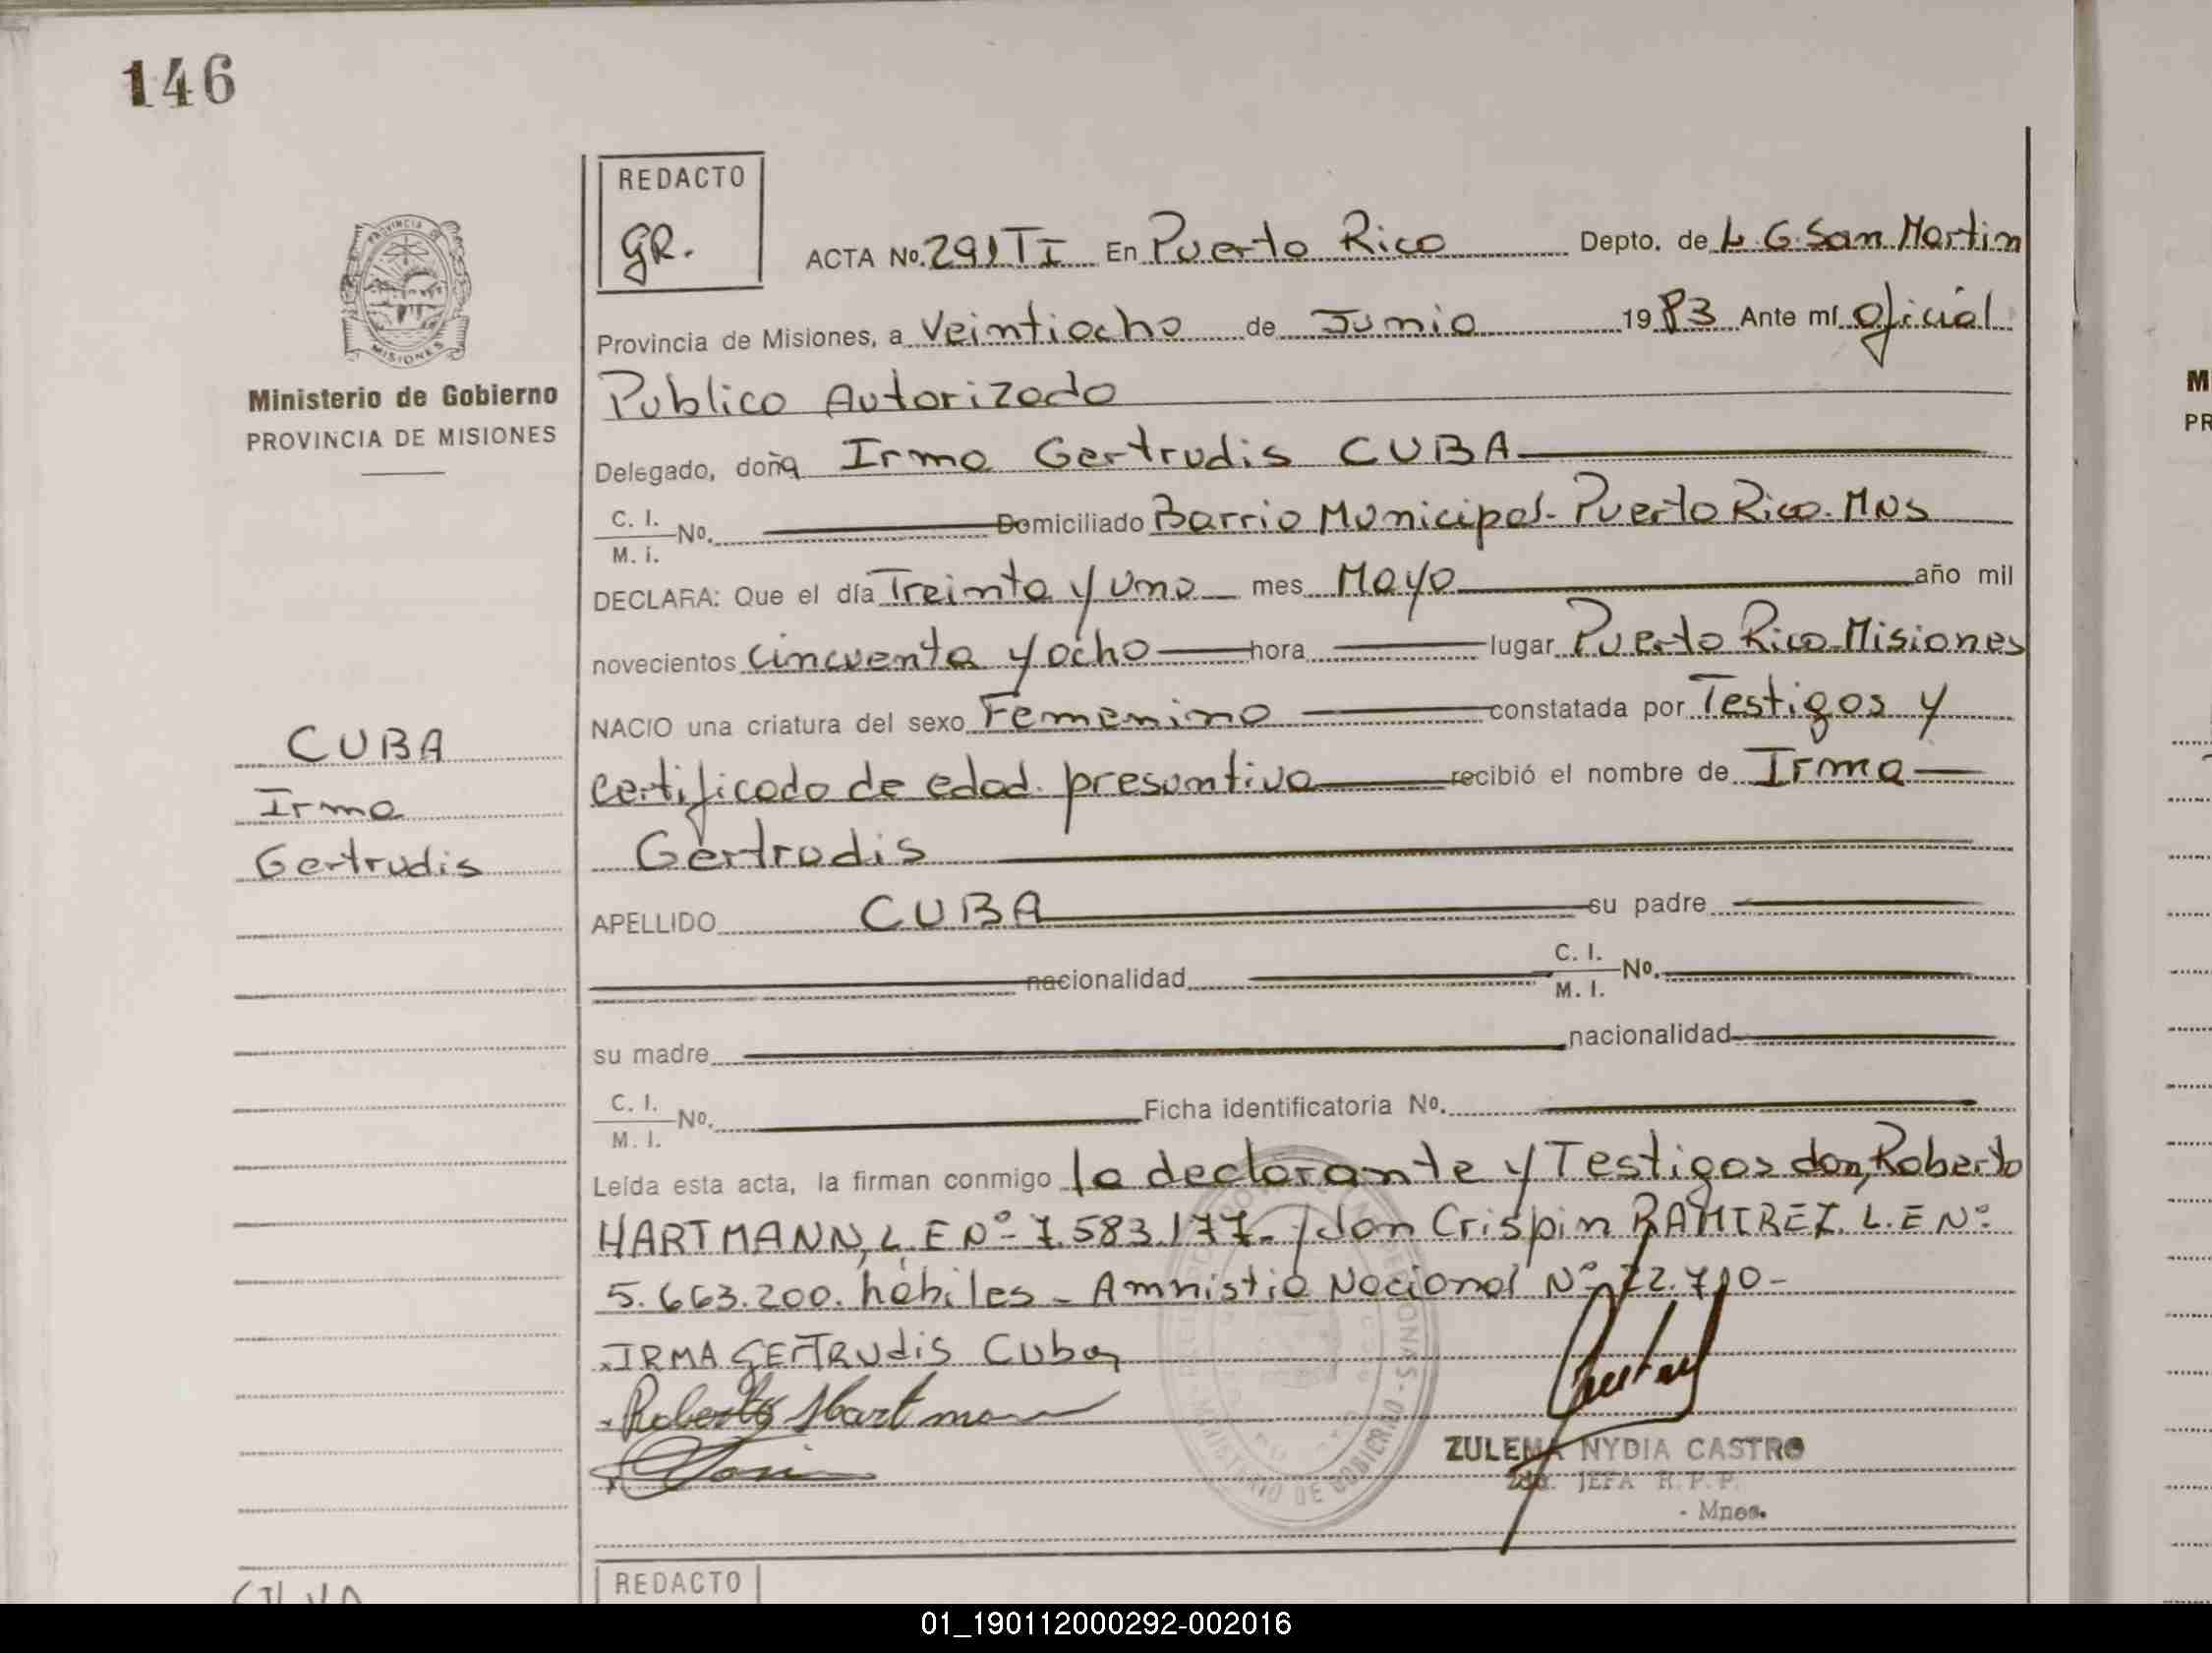 146
REDACTO
GR.
ACTA Nº. 291 TI En Puerto Rico Depto. de L. G. San Martin
Provincia de Misiones, a Veintiocho de Junio 1983 Ante mí Oficial
Publico Autorizado
Delegado, doña Irma Gertrudis CUBA
C. I.
M. i. Nº. Domiciliado Barrio Municipal - Puerto Rico. MNS
DECLARA: Que el día Treinta y Uno mes Mayo año mil
novecientos cincuenta y ocho hora lugar Puerto Rico Misiones
NACIO una criatura del sexo Femenino constatada por Testigos y
certificado de edad presuntiva recibió el nombre de Irma
Gertrudis
APELLIDO CUBA su padre
nacionalidad C. I.
M. I. Nº.
su madre nacionalidad
C. I.
M. I. Nº. Ficha identificatoria Nº.
Leída esta acta, la firman conmigo la declarante y Testigos don, Roberto
HARTMANN, L. E Nº - 7.583.177 - y don Crispin RAMIREZ. L. E Nº
5.663.200. hábiles - Amnistia Nacional Nº 22.710 -
IRMA GERTRUdiS Cuba
Roberto Hartmann
ZULEMA NYDIA CASTRO
2da. JEFA R. P. P.
- Mnes.
PROVINCIA DE
MISIONES
Ministerio de Gobierno
PROVINCIA DE MISIONES
CUBA
Irma
Gertrudis
MINISTERIO DE GOBIERNO
REDACTO
M
PR
01_190112000292-002016